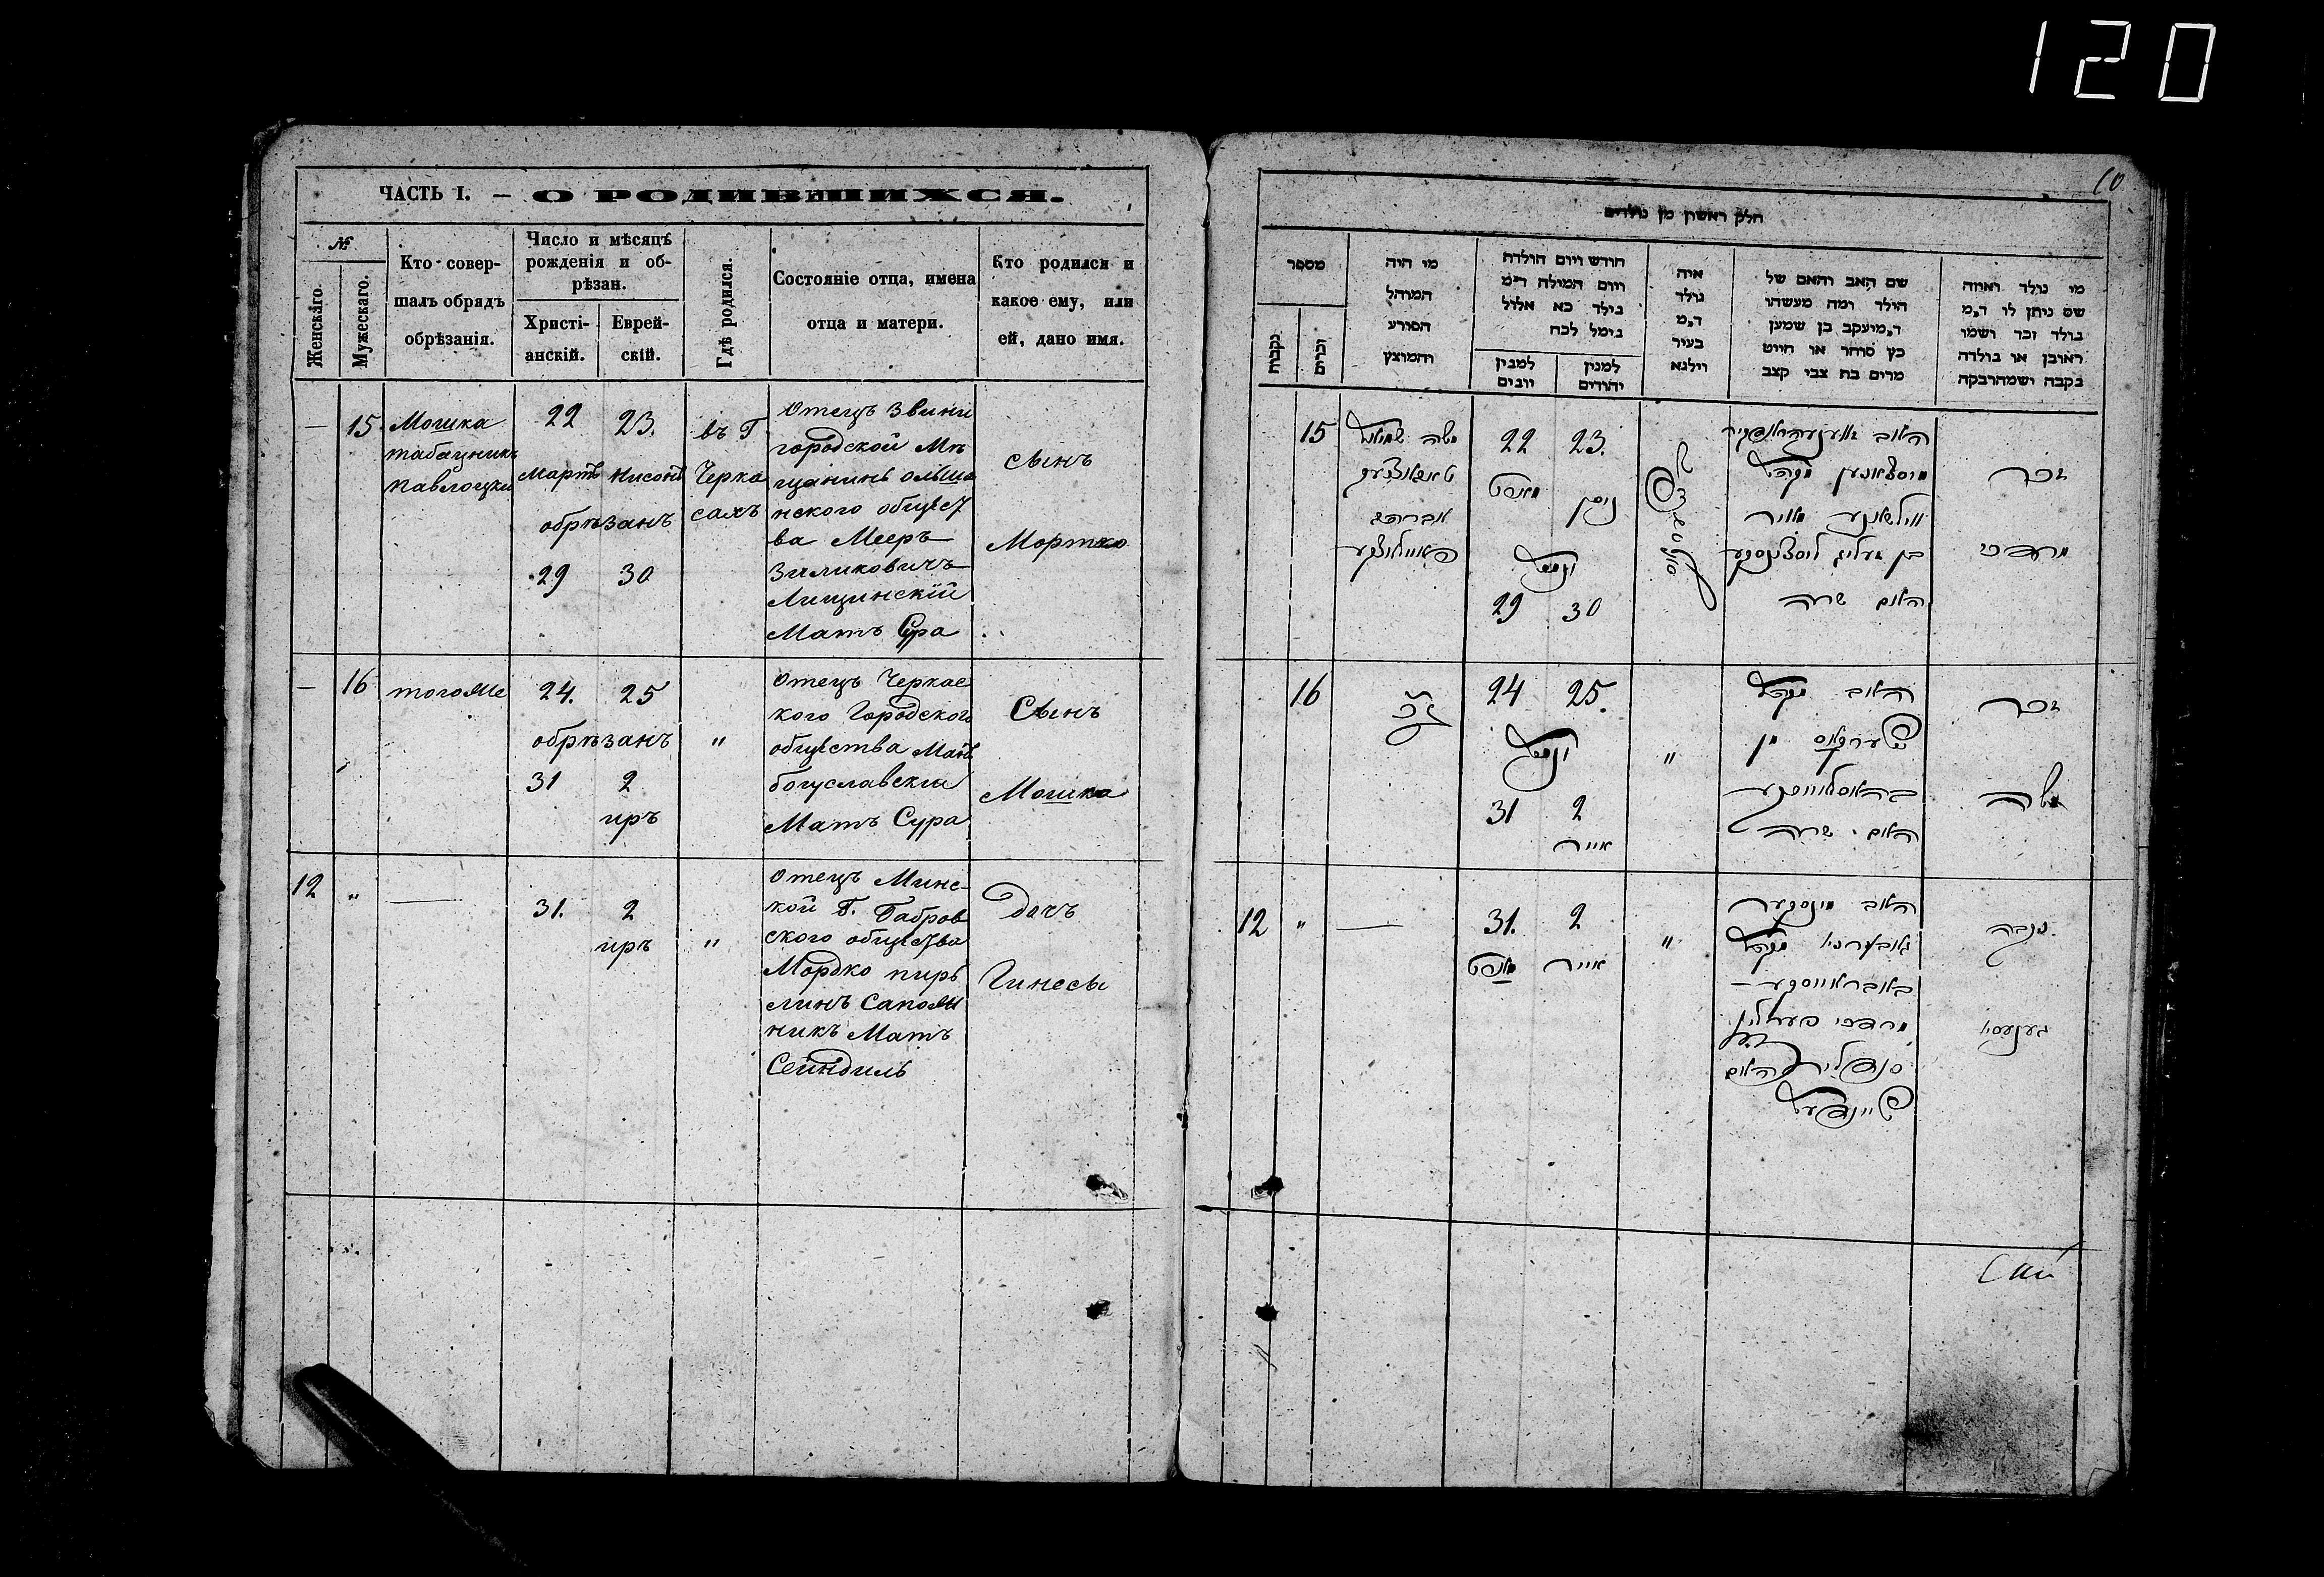 120
ЧАСТЬ I. — О РОДИВШИХСЯ.
№
Женскаго.
Мужескаго.
Кто совер-
шалъ обрядъ
обрѣзанія.
Число и мѣсяцъ
рожденія и об-
рѣзан.
Христі-
анскій.
Еврей-
скій.
Гдѣ родился.
Состояніе отца, имена
отца и матери.
Кто родился и
какое ему, или
ей, дано имя.
— 15
Мошка
табачникъ
павлоцки
22 23.
Мартъ Нисонъ
обрѣзанъ
29 30
въ Г
Черка
сахъ
Отецъ Звини
городской Мѣ
щанинъ Ольша
нского общест
ва Мееръ
Зиликовичъ
Лищинскій
Мать Сура
сынъ
Мортко
— 16
тогоже
24. 25
обрѣзанъ
31 2
иръ
"
Отецъ Черкас
кого Городского
общества
богуславскы
Мать Сура
Сынъ
Мошка
12 "
—
31. 2
иръ
"
Отецъ Минс-
кой Г. Бабров
ского общества
Мордко пирь
линъ Сапож
никъ Мать
Сейндиль
Дочъ
Гинесы
10
חלק ראשון מן נולדים
מספר
נקבות
זכרים
מי היה
המוהל
הפורע
והמוצץ
חודש ויום הולדה
ויום המילה ד״מ
נולד כא אלול
נימל לכח
למנין
יונים
למנין
יהודים
איה
נולד
ד״מ
בעיר
ווילנא
שם האב והאם של
הילד ומה מעשהו
ד״מ יעקב בן שמען
כץ סוחר או חייט
מרים בת צבי קצב
מי נולד ואיזה
שם ניתן לו ד״מ
נולד זכר ושמו
ראובן או נולדה
נקבה ושמה רבקה
15
משה
אברהם
22 23.
מארט ניסן
נימול
29 30
האב
מקהל
מאיר
בן זעליג
האם שרה
זכר
מרדכי
16
הנ״ל
24 25.
נימול
31 2
אייר
"
האב מקהל
האם שרה
זכר
משה
12 "
—
31. 2
מארט אייר
"
האב מינסקער
מקהל
באבראויסקער —
מרדכי פערלין
האם
שיינדעל
נקבה
גענעסי